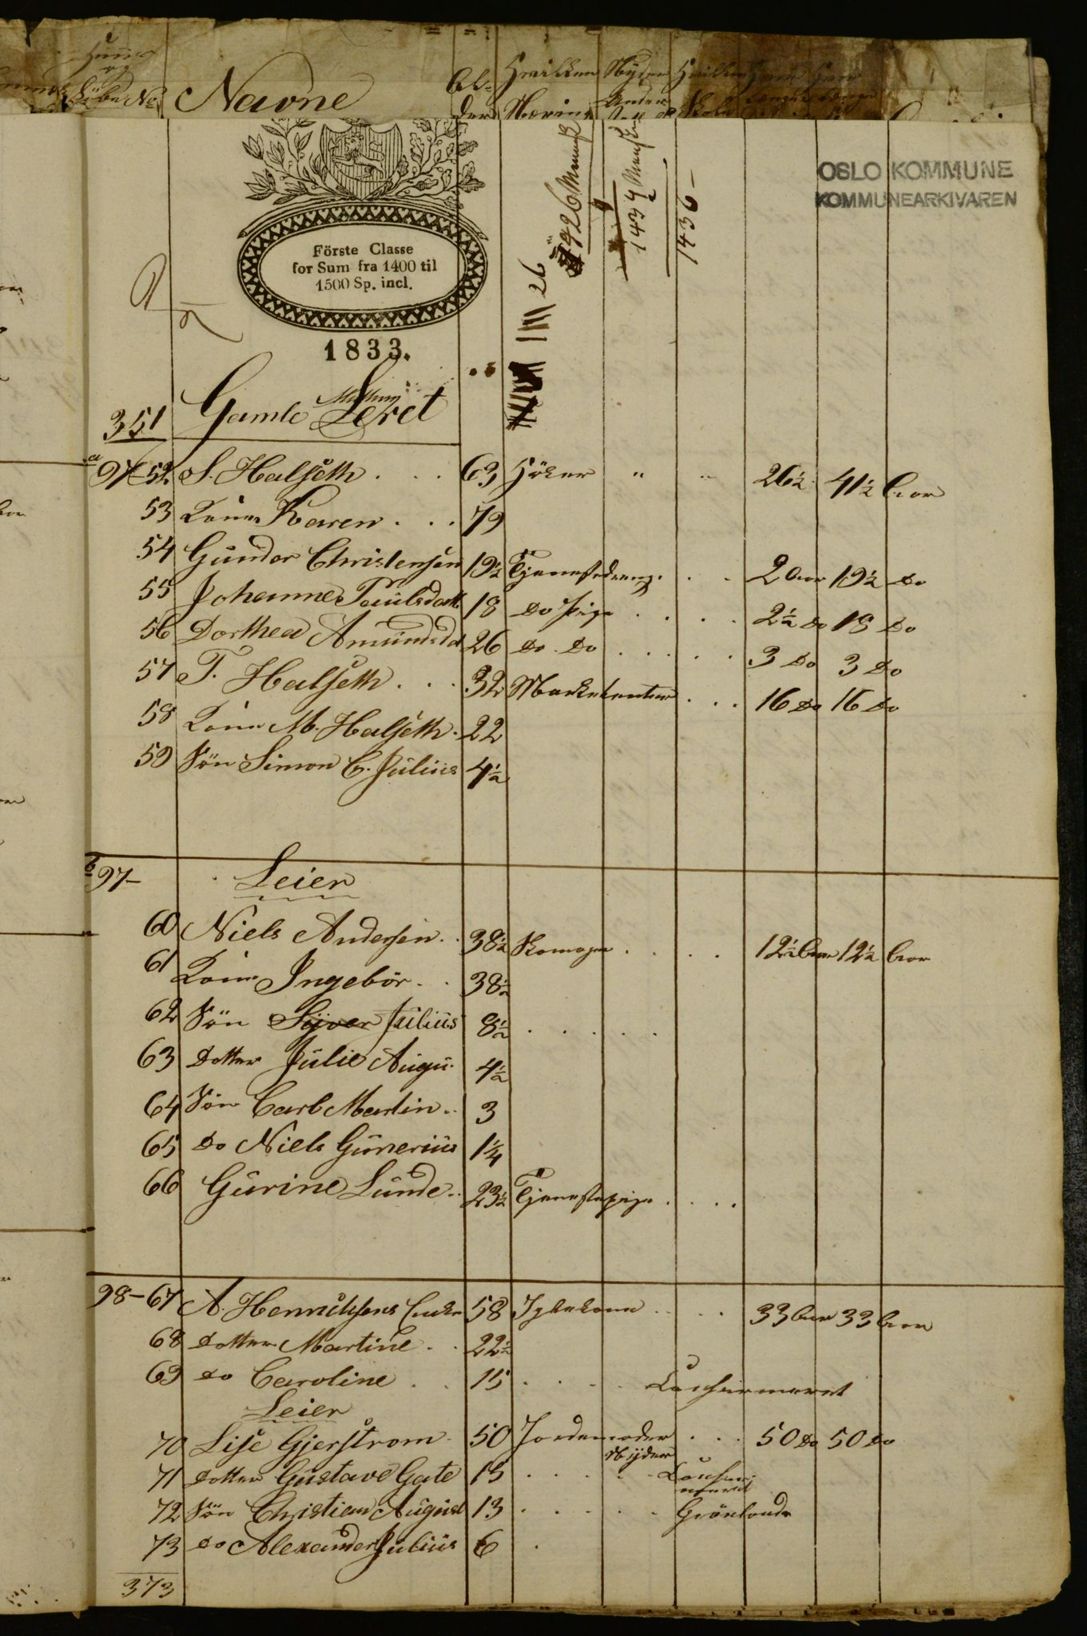 Navne
Al-
der
Hvilken
Næring
OSLO KOMMUNE
KOMMUNEARKIVAREN
Förste Classe
for Sum fra 1400 til
1500 Sp. incl.
1833.
26
1426
1434
1436 -
351 Gamle Leret
a 97-52 S. Halseth . . . 63 Höker " " 26½ 41½ Aar
53 Kone Karen . . . 79
54 Gunder Christensen 19½ Tjenestedreng . . . 2 Aar 19½ Do
55 Johanne Poulsdatt 18 Do Pige . . . . 2½ Do 18 Do
56 Dorthea Amundsd 26 Do Do . . . . . 3 Do 3 Do
57 T. Halseth . . . 32 Marketenter . . . 16 Do 16 Do
58 Kone M. Halseth . 22
59 Sön Simon C. Julius 4½
b 97- Leier
60 Niels Andersen . . 38½ Skomager . . . . 12½ Aar 12½ Aar
61 Kone Ingebör . . 38½
62 Sön Syver Julius 8½ . . . . .
63 Datter Julie Augu. 4½
64 Sön Carl Martin . . 3
65 Do Niels Gunerius 1¼
66 Gurine Lunde . . 23½ Tjenestepige . . . .
98-67 A. Henrichsens Enke 58 . . . . 33 Aar 33 Aar
68 Datter Martine . . 22½
69 Do Caroline . . 15 . . . .
Leier
70 Lise Gjerström 50 Jordemoder . . . 50 Do 50 Do
Nyder
71 Datter Gustave Gate 15 . . . . .
72 Sön Christian August 13 . . . . . Grönlands
73 Do Alexander Julius 6 .
373